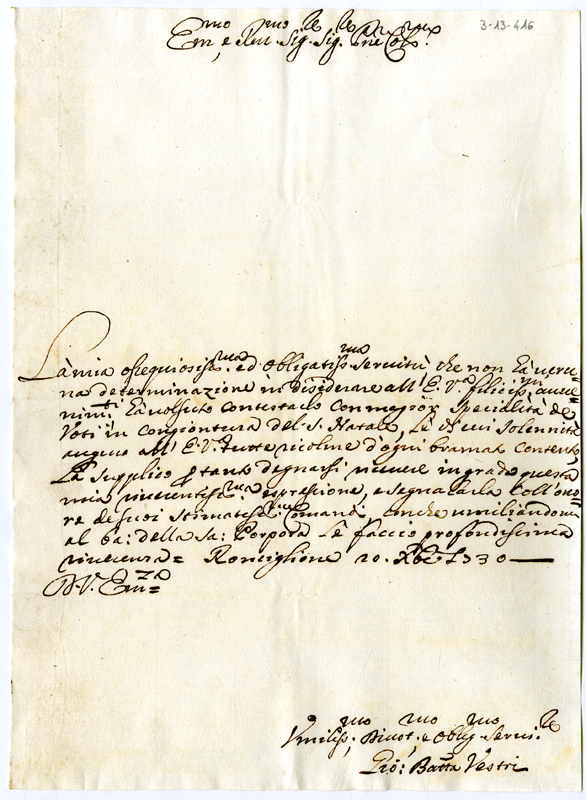 3-13-416
Em.mo e Reu.mo Sig.re Sig.re Pne Col.mo
La mia ossequiosiss.ma ed obligatiss.ma seruitù, che non hà ueru=
na determinazione in disiderare all' E. V.a feliciss.mi auue=
nim.ti hà uolsuto contestarlo con maggior specialità de
Voti in congiontura del S. Natale, le di cui solennità
auguro all' E. V. tutte ricolme d'ogni bramat. contento,
La supplico p tanto degnarsi riceuere in grado questa
mia riuerentiss.ma espressione, e segnalarla coll' ono=
re de suoi stimatiss.mi comandi, con che umiliandomi
al ba: della Sa: Porpora le faccio profondissima
riuerenza= Ronciglione 20. Xbre 1730
D. V. Em.za=
Vmiliss.mo, Diuot.mo e Oblig.mo Seruit.e
Gio: Batta Vestri